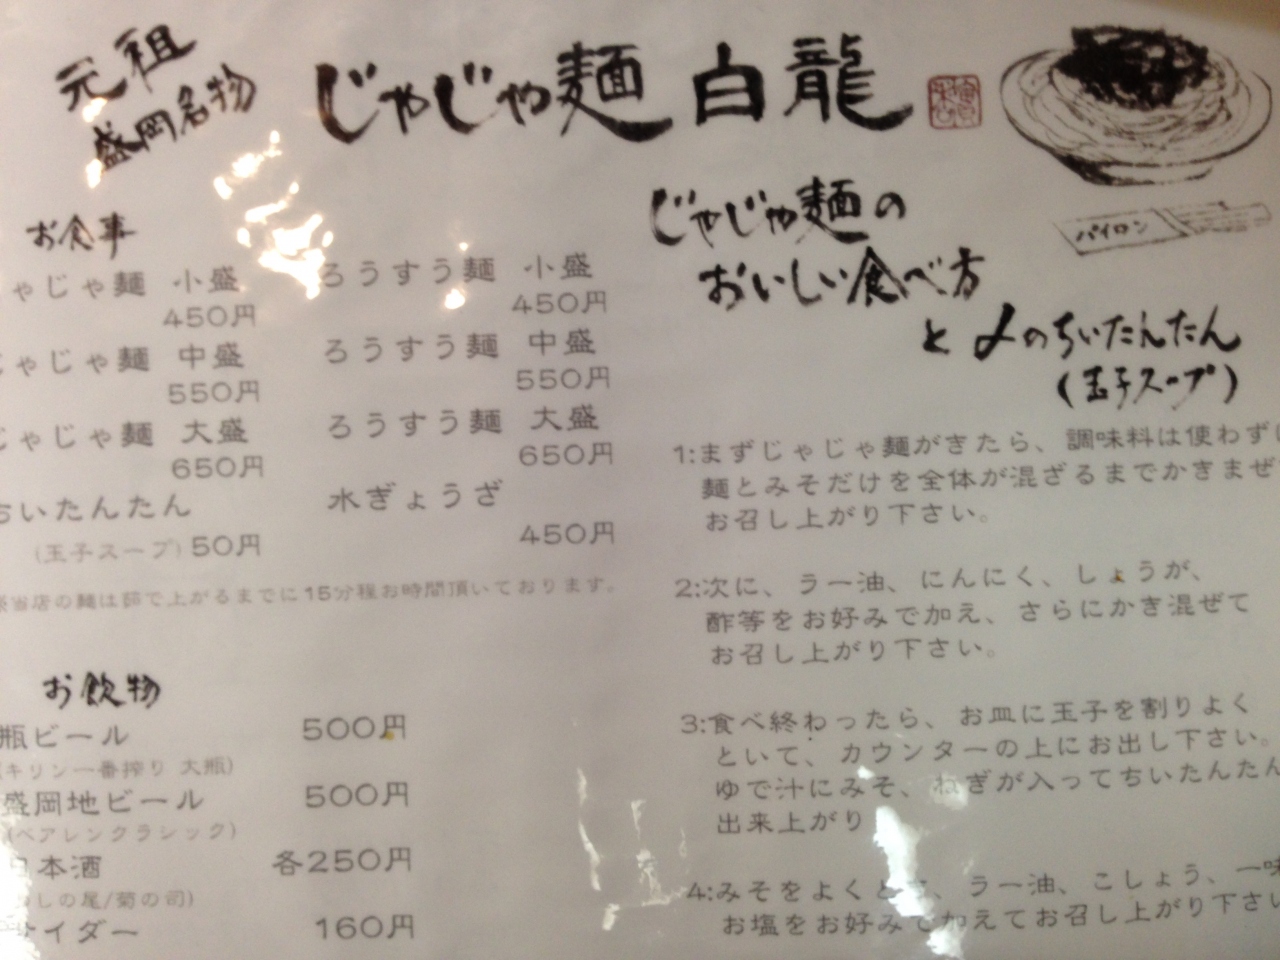 元祖
盛岡名物
じゃじゃ麺 白龍
パイロン
お食事
ゃじゃ麺 小盛
450円
じゃじゃ麺 中盛
550円
じゃじゃ麺 大盛
650円
ちいたんたん
(玉子スープ) 50円
ろうすう麺 小盛
450円
ろうすう麺 中盛
550円
ろうすう麺 大盛
650円
水ぎょうざ
450円
当店の麺は茹で上がるまでに15分程お時間頂いております。
お飲物
瓶ビール 500円
(キリン一番搾り 大瓶)
盛岡地ビール 500円
(ベアレンクラシック)
日本酒 各250円
しの尾/菊の司)
サイダー 160円
じゃじゃ麺の
おいしい食べ方
と〆のちいたんたん
(玉子スープ)
1:まずじゃじゃ麺がきたら、調味料は使わずに
麺とみそだけを全体が混ざるまでかきまぜ
お召し上がり下さい。
2:次に、ラー油、にんにく、しょうが、
酢等をお好みで加え、さらにかき混ぜて
お召し上がり下さい。
3:食べ終わったら、お皿に玉子を割りよく
といて、カウンターの上にお出し下さい。
ゆで汁にみそ、ねぎが入ってちいたんたん
出来上がり
4:みそをよくとき、ラー油、こしょう、一味
お塩をお好みで加えてお召し上がり下さい